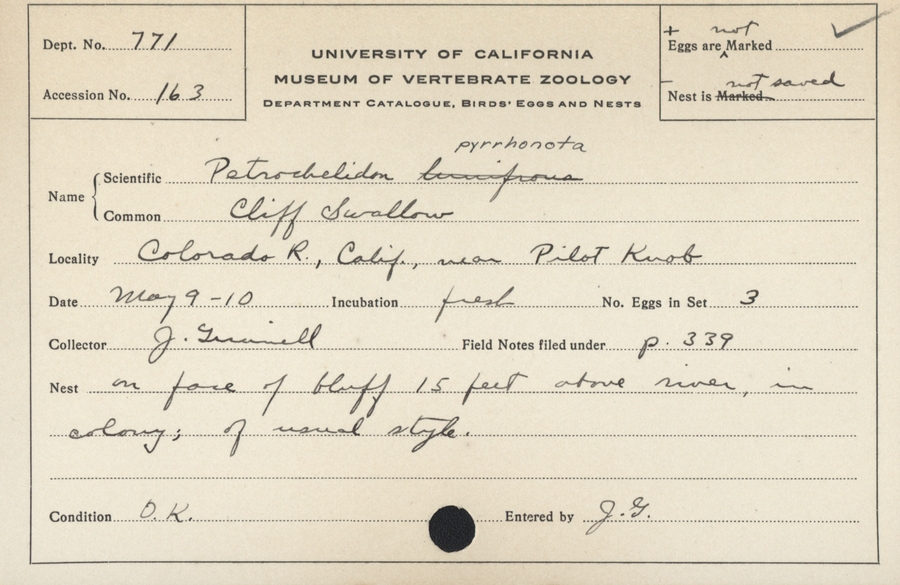 Dept. No. 771
Accession No. 163
UNIVERSITY OF CALIFORNIA
MUSEUM OF VERTEBRATE ZOOLOGY
DEPARTMENT CATALOGUE, BIRDS' EGGS AND NESTS
+ not
Eggs are ^ Marked ✓
- not saved
Nest is Marked
pyrrhonota
Name { Scientific Petrochelidon lunifrons
Common Cliff Swallow
Locality Colorado R., Calif., near Pilot Knob
Date May 9-10 Incubation fresh No. Eggs in Set 3
Collector J. Grinnell Field Notes filed under p. 339
Nest on face of bluff 15 feet above river, in
colony; of usual style.
Condition O.K. Entered by J.G.